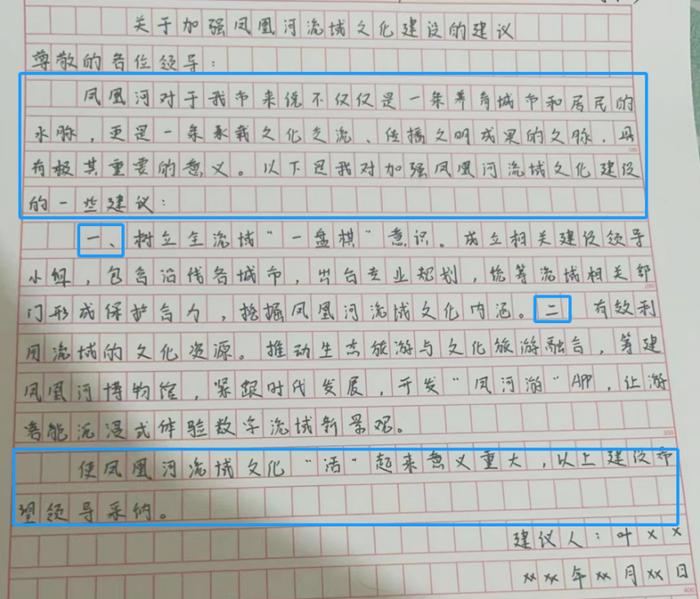 关于加强凤凰河流域文化建设的建议
尊敬的各位领导：
凤凰河对于我市来说不仅仅是一条养育城市和居民的
水脉，更是一条承载文化交流、传播文明成果的文脉，具
有极其重要的意义。以下是我对加强凤凰河流域文化建设
的一些建议：
一、树立全流域“一盘棋”意识。成立相关建设领导
小组，包含沿线各城市，出台专业规划，统筹流域相关部
门形成保护合力，挖掘凤凰河流域文化内涵。二 有效利
用流域的文化资源。推动生态旅游与文化旅游融合，筹建
凤凰河博物馆，紧跟时代发展，开发“凤河游”APP，让游
客能沉浸式体验数字流域新景观。
使凤凰河流域文化“活”起来意义重大，以上建议希
望领导采纳。
建议人：叶××
××年××月××日